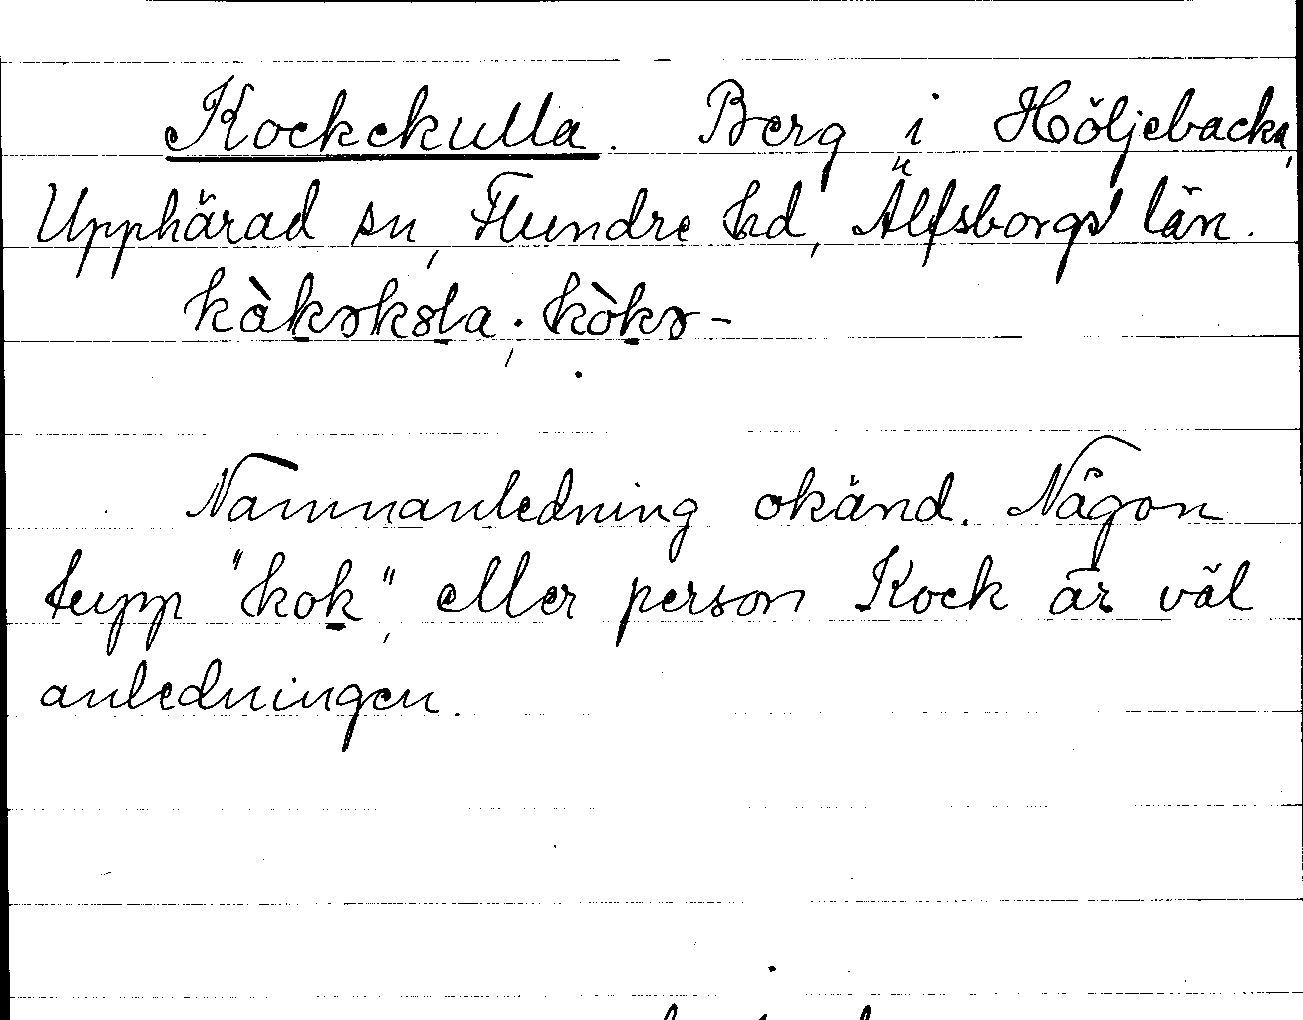 Kockekulla. Berg i Höljebacka,
Upphärad sn, Flundre hd, Älfsborgs län.
Namnanledning okänd. Någon
tupp "kok", eller person Kock är väl
anledningen.